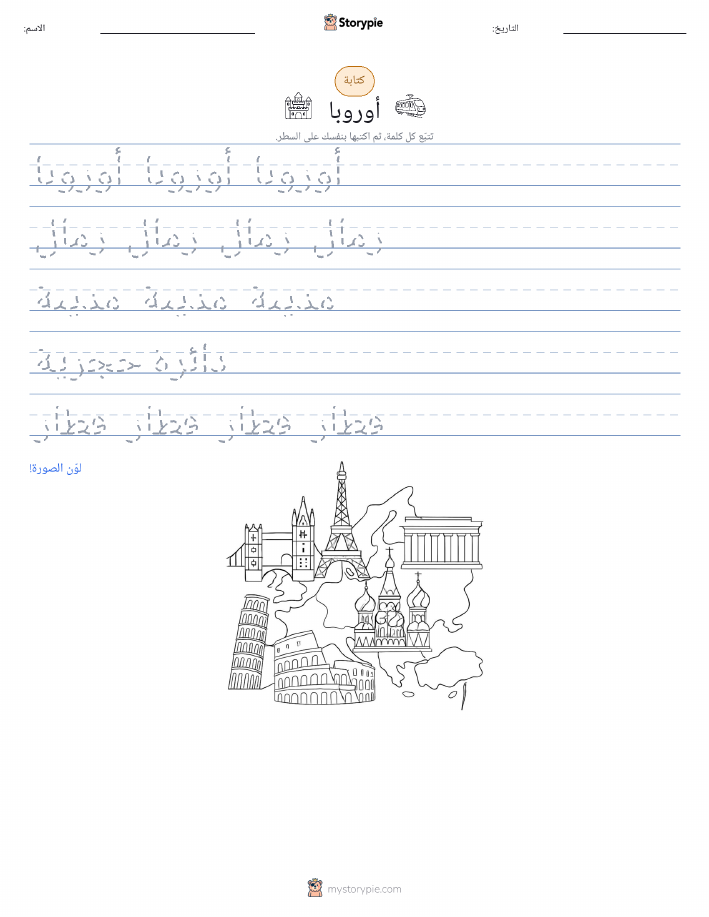 الاسم:
Storypie
التاريخ:
كتابة
أوروبا
تتبّع كل كلمة، ثم اكتبها بنفسك على السطر.
أوروبا أوروبا أوروبا
رمال رمال رمال رمال
مدينة مدينة مدينة
دائرة حجرية
قطار قطار قطار قطار
لوّن الصورة!
mystorypie.com